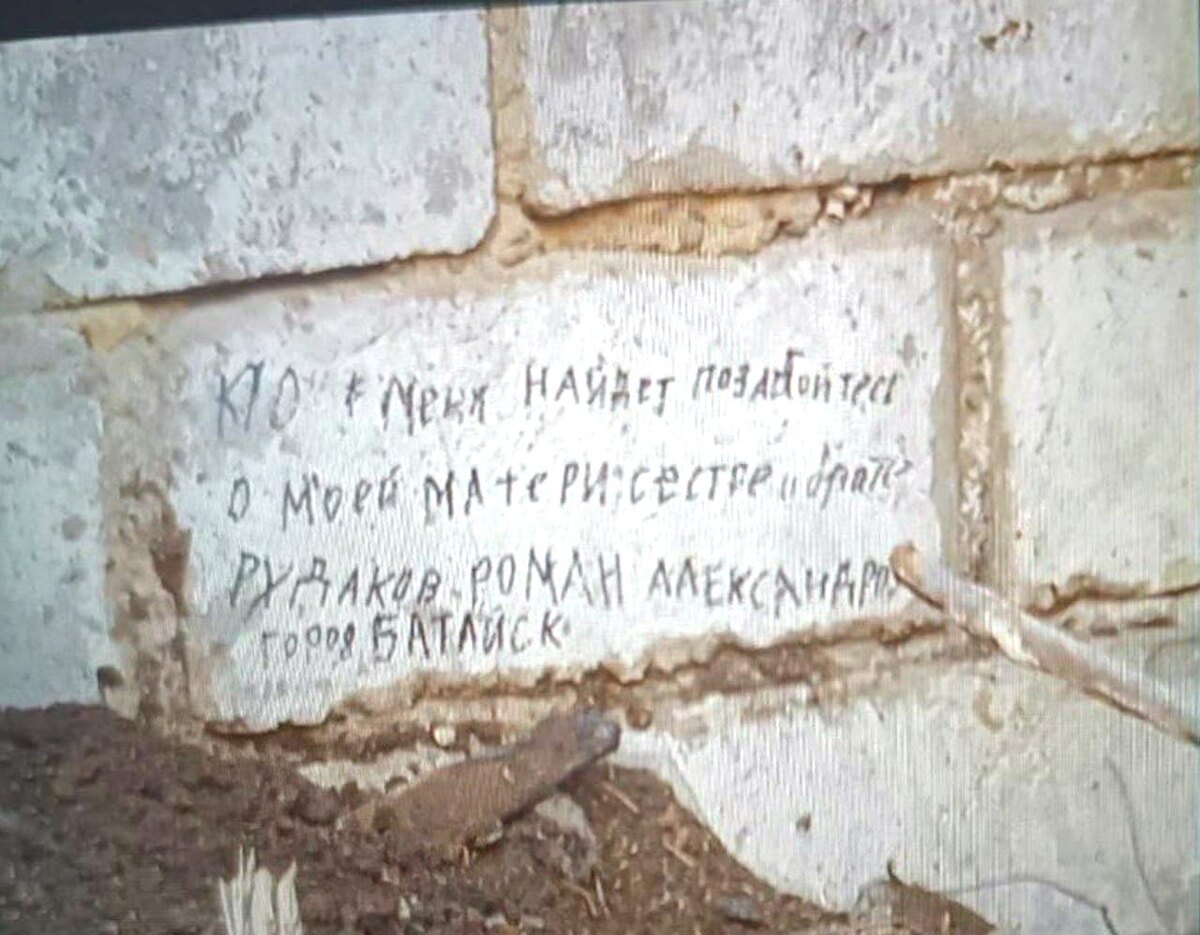 КТО меня найдет позаботтесь
о моей матери: сестре и брате
РУДАКОВ РОМАН АЛЕКСАНДРО
город БАТАЙСК